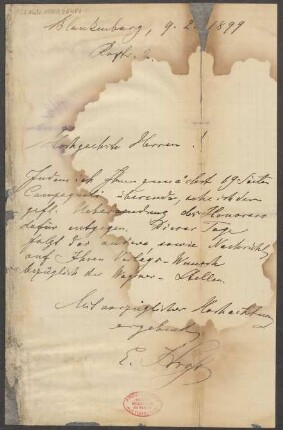 Blankenburg, 9. 2. 1899
Hochgeehrte Herren!
Indem ich Ihnen zunächst 19 Seiten
Campagnolo übersende, sehe ich der
gefl. Uebersendung des Honorars
dafür entgegen. Dieser Tage
folgt das andere sowie Nachricht
auf Ihren Verlags-Wunsch
bezüglich der Wagner-Stellen.
Mit vorzüglicher Hochachtung
ergebenst
E.